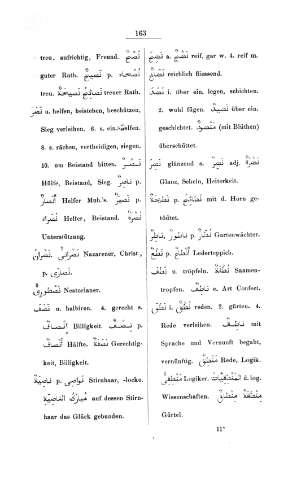 163
treu. aufrichtig, Freund. نَصَحَ
guter Rath. نَصِيحٌ p. نُصَحَاءُ
treu. نَصِيحَةٌ p. نَصَائِحُ treuer Rath.
نَصَرَ u. helfen, beistehen, beschützen,
Sieg verleihen. 6. s. ein. helfen.
8. s. rächen, vertheidigen, siegen.
10. um Beistand bitten. نَصْرٌ
Hülfe, Beistand, Sieg. نَاصِرٌ p.
أَنْصَارٌ Helfer Muh.'s. نَصِيرٌ p.
نُصَرَاءُ Helfer, Beistand. نُصْرَةٌ
Unterstützung.
نَصْرَانِيٌّ, نَصْرَانُ Nazarener, Christ,
p. نَصَارَى.
نَسْطُورِيٌّ Nestorianer.
نَصَفَ u. halbiren. 4. gerecht s.
إِنْصَافٌ Billigkeit نِصْفٌ p.
أَنْصَافٌ Hälfte. نَصَفَةٌ Gerechtig-
keit, Billigkeit.
نَاصِيَةٌ p. نَوَاصِي Stirnhaar, -locke.
مُبَارَكُ النَّاصِيَةِ auf dessen Stirn-
haar das Glück gebunden.
نَضِجَ a. نُضْجٌ reif, gar w. 4. reif m.
نَضَّاخٌ reichlich fliessend.
نَضَدَ i. über ein. legen, schichten.
2. wohl fügen. نَضِيدٌ über ein.
geschichtet. مَنْضُودٌ (mit Blüthen)
überschüttet.
نَضَرَ glänzend s. نَضِرٌ adj. نَضْرَةٌ
Glanz, Schein, Heiterkeit.
نَطِيحَةٌ p. نَطَائِحُ mit d. Horn ge-
tödtet.
نَاطِرٌ, نَاطُورٌ p. نُطَّارٌ Gartenwächter.
نِطْعٌ p. أَنْطَاعٌ Lederteppich.
نَطَفَ u. tröpfeln. نُطْفَةٌ Saamen-
tropfen. نَاطِفٌ e. Art Confect.
نَطَقَ i. نُطْقٌ reden. 2. gürten. 4.
Rede verleihen. نَاطِقٌ mit
Sprache und Vernunft begabt,
vernünftig. مَنْطِقٌ Rede, Logik.
مَنْطِقِيٌّ Logiker. الْمَنْطِقِيَّاتُ d. log.
Wissenschaften. نِطَاقٌ مِنْطَقَةٌ
Gürtel.
11*